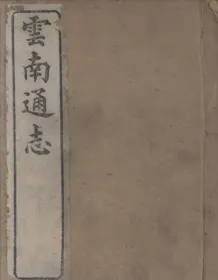 雲南通志